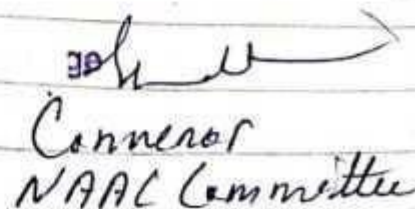 Connenor
NAAC Committee